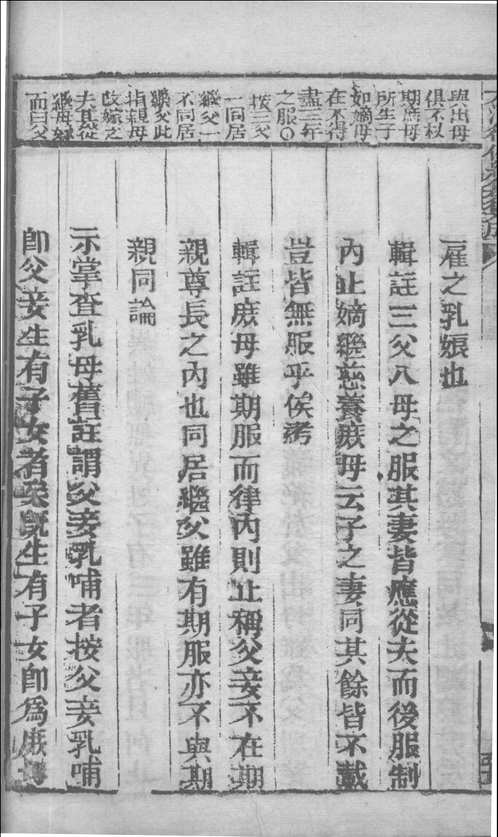 與出母
俱不杖
期庶母
所生子
如嫡母
在不得
盡三年
之服〇
按三父
一同居
繼父一
不同居
繼父此
指親母
改嫁之
夫其從
繼母嫁
而曰父
雇之乳娘也
輯註三父八母之服其妻皆應從夫而後服制
內止嫡繼慈養庶母云子之妻同其餘皆不載
豈皆無服乎俟考
輯註庶母雖期服而律內則止稱父妾不在期
親尊長之內也同居繼父雖有期服亦不與期
親同論
示掌查乳母舊註謂父妾乳哺者按父妾乳哺
卽父妾生有子女者矣旣生有子女卽爲庶母